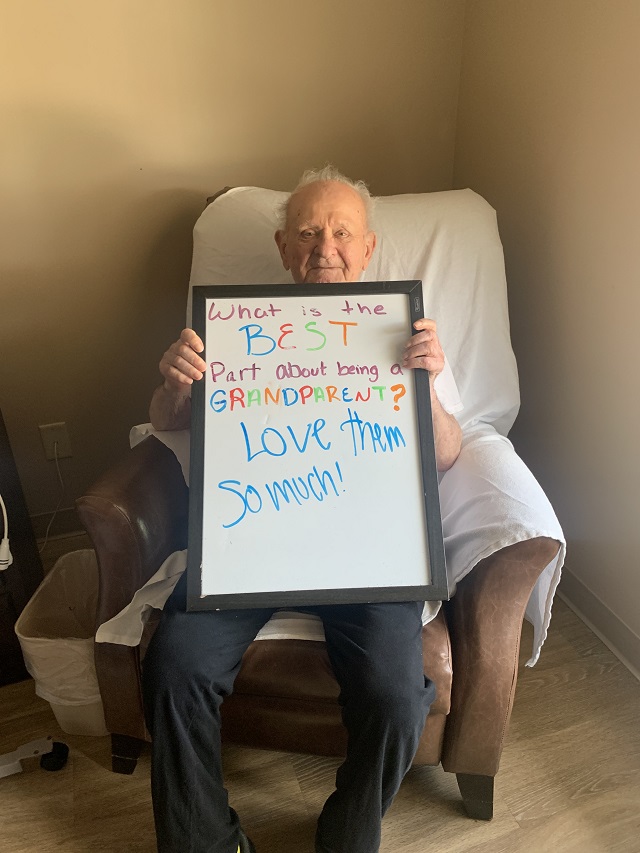 What is the
BEST
Part about being a
GRANDPARENT?
LOVE them
So much!